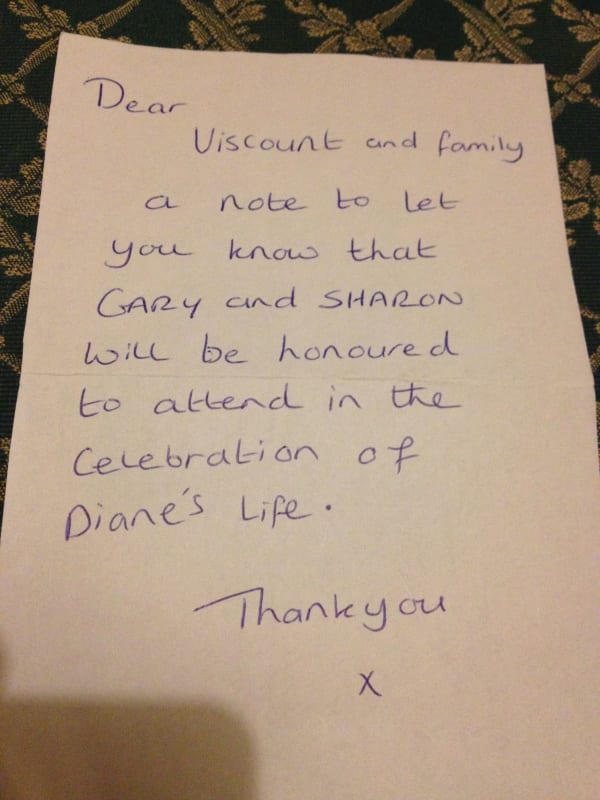 Dear
Viscount and family
a note to let
you know that
GARY and SHARON
will be honoured
to attend in the
Celebration of
Diane's Life.
Thankyou
x